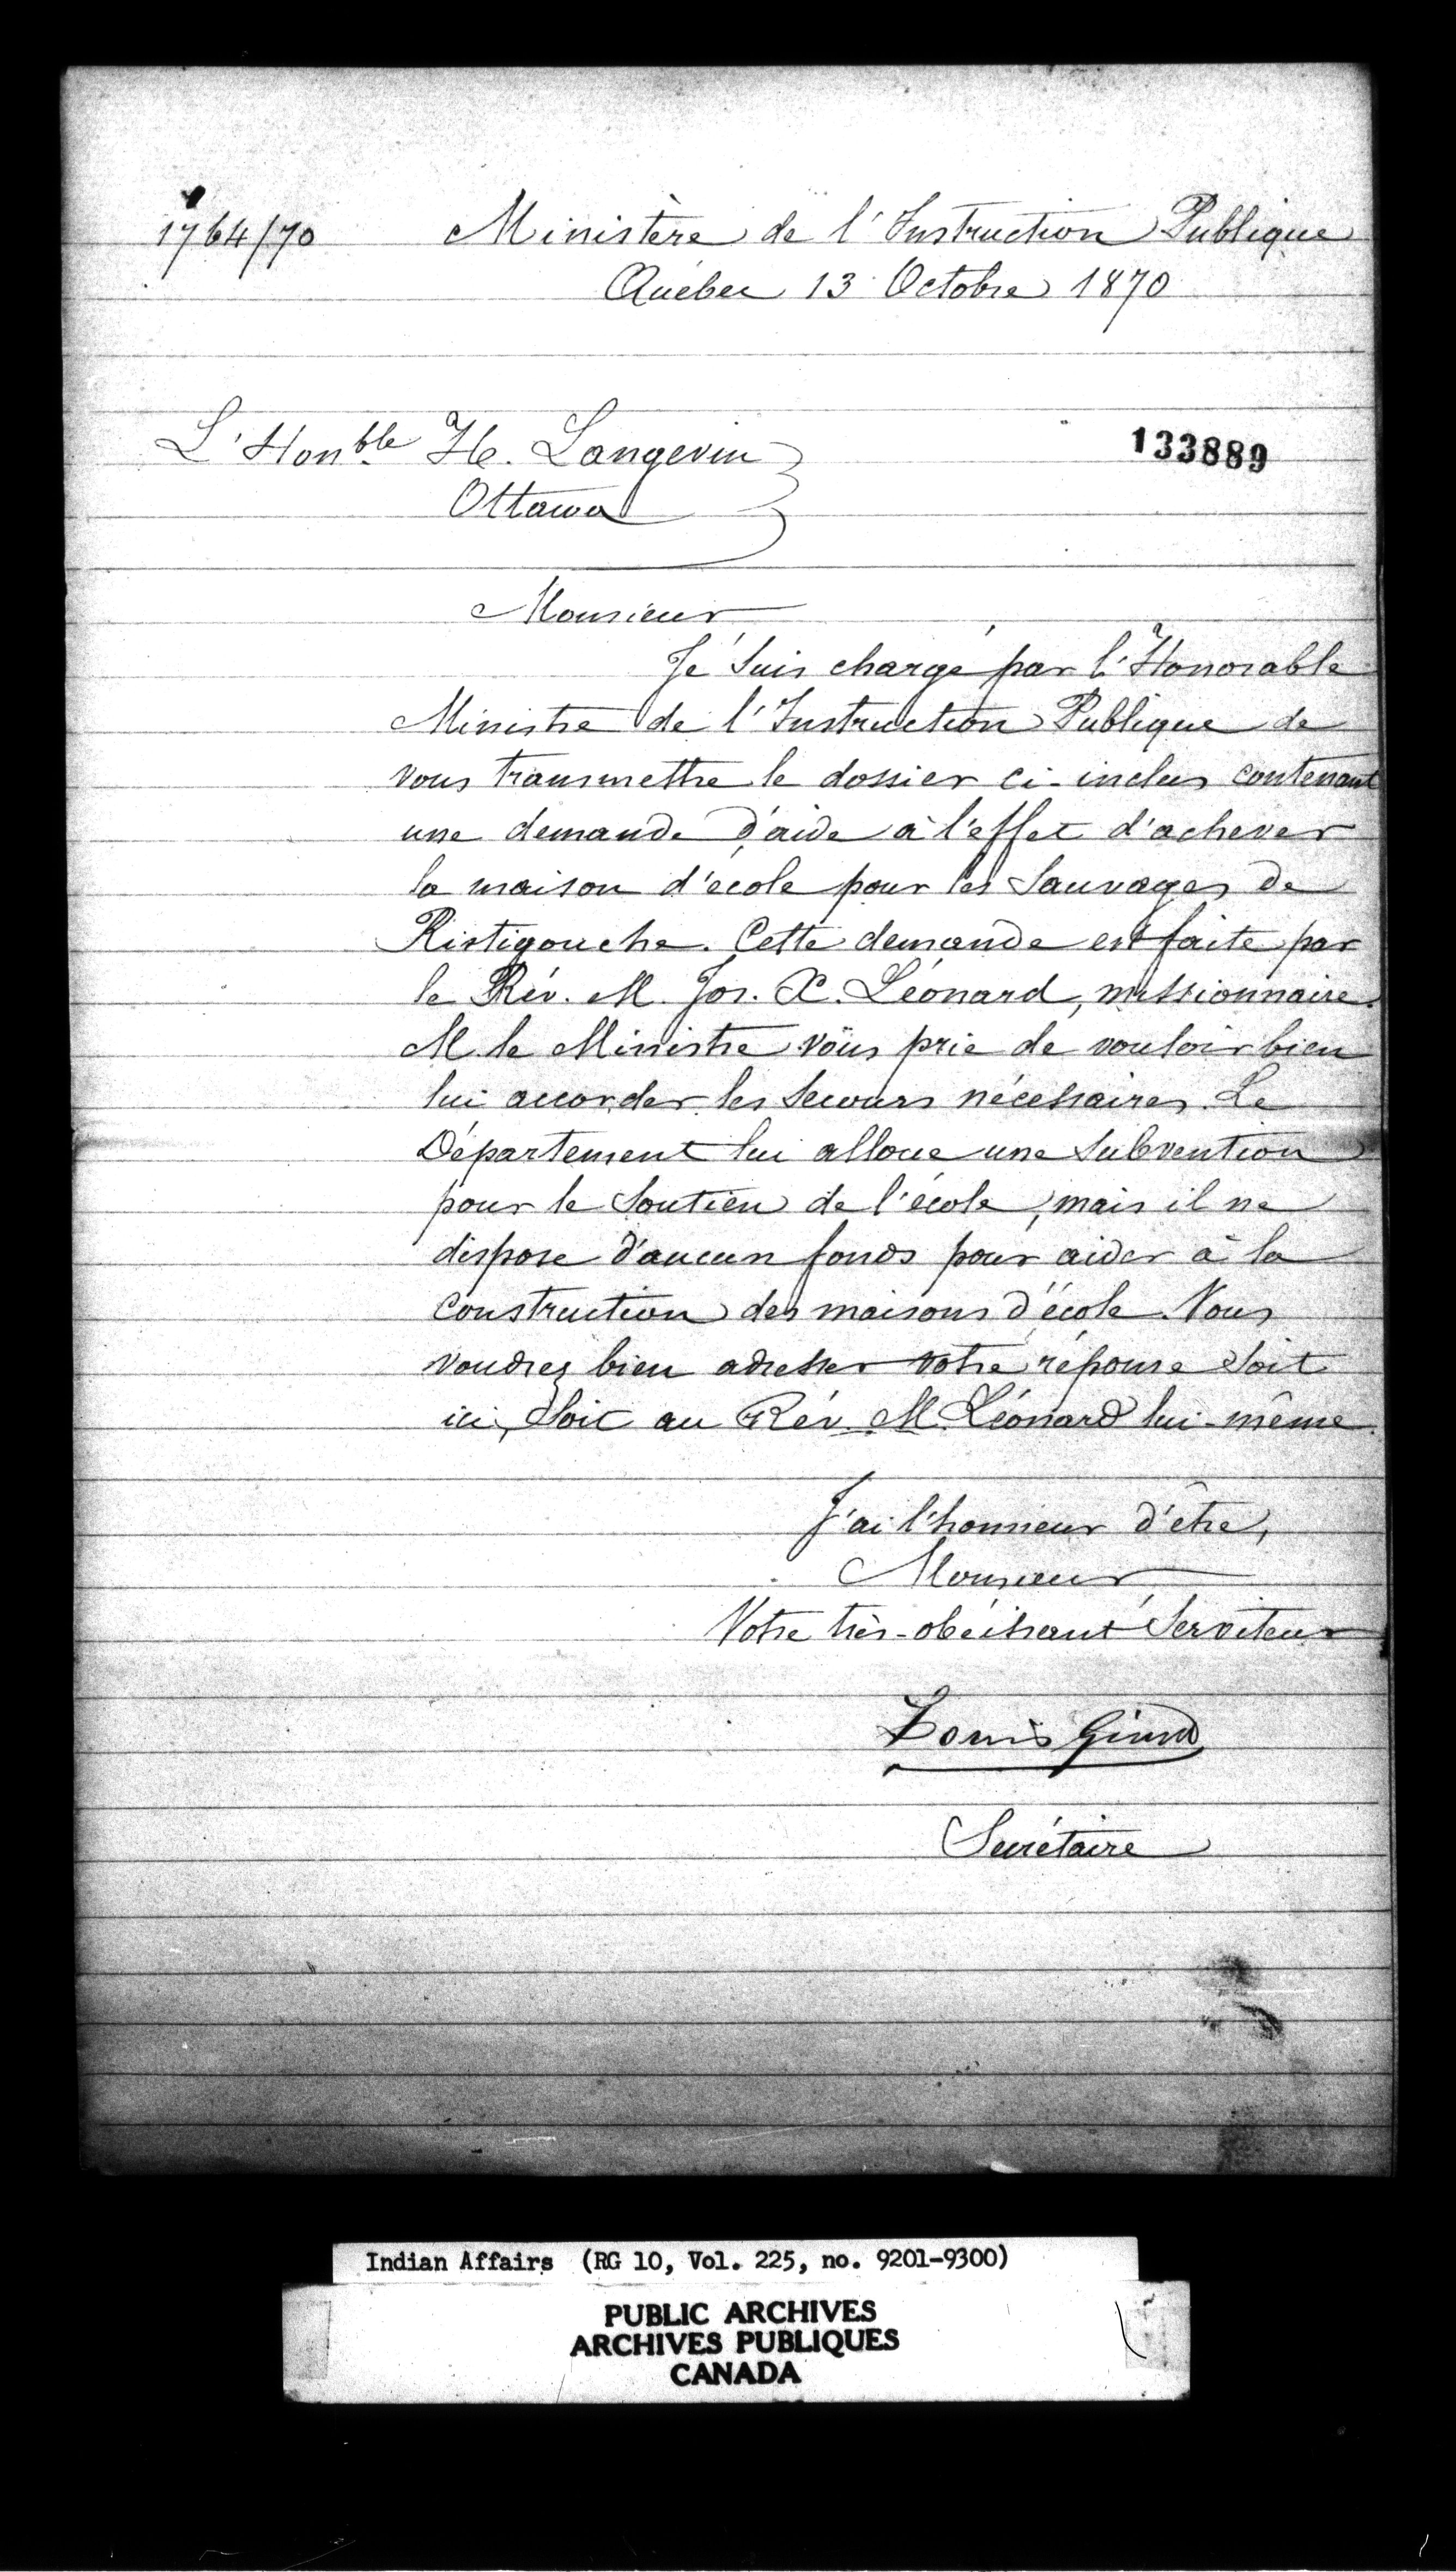 1764/70 Ministère de l'Instruction Publique
Québec 13 Octobre 1870
L'Honble H. Langevin
133889
Ottawa
Monsieur
Je suis chargé par l'Honorable
Ministre de l'Instruction Publique de
vous transmettre le dossier ci-inclus contenant
une demande d'aide à l'effet d'achever
la maison d'école pour les Sauvages de
Ristigouche. Cette demande est faite par
le Rév. M. Jos. X. Léonard, missionnaire.
M. le Ministre vous prie de vouloir bien
lui accorder les secours nécessaires. Le
Département lui alloue une subvention
pour le soutien de l'école, mais il ne
dispose d'aucun fonds pour aider à la
construction des maisons d'école. Vous
voudrez bien adresser votre réponse soit
ici, soit au Rév. M. Léonard lui-même.
J'ai l'honneur d'être,
Monsieur
Votre très-obéissant Serviteur
Louis Giard
Secrétaire
Indian Affairs (RG 10, Vol. 225, no. 9201-9300)
PUBLIC ARCHIVES
ARCHIVES PUBLIQUES
CANADA